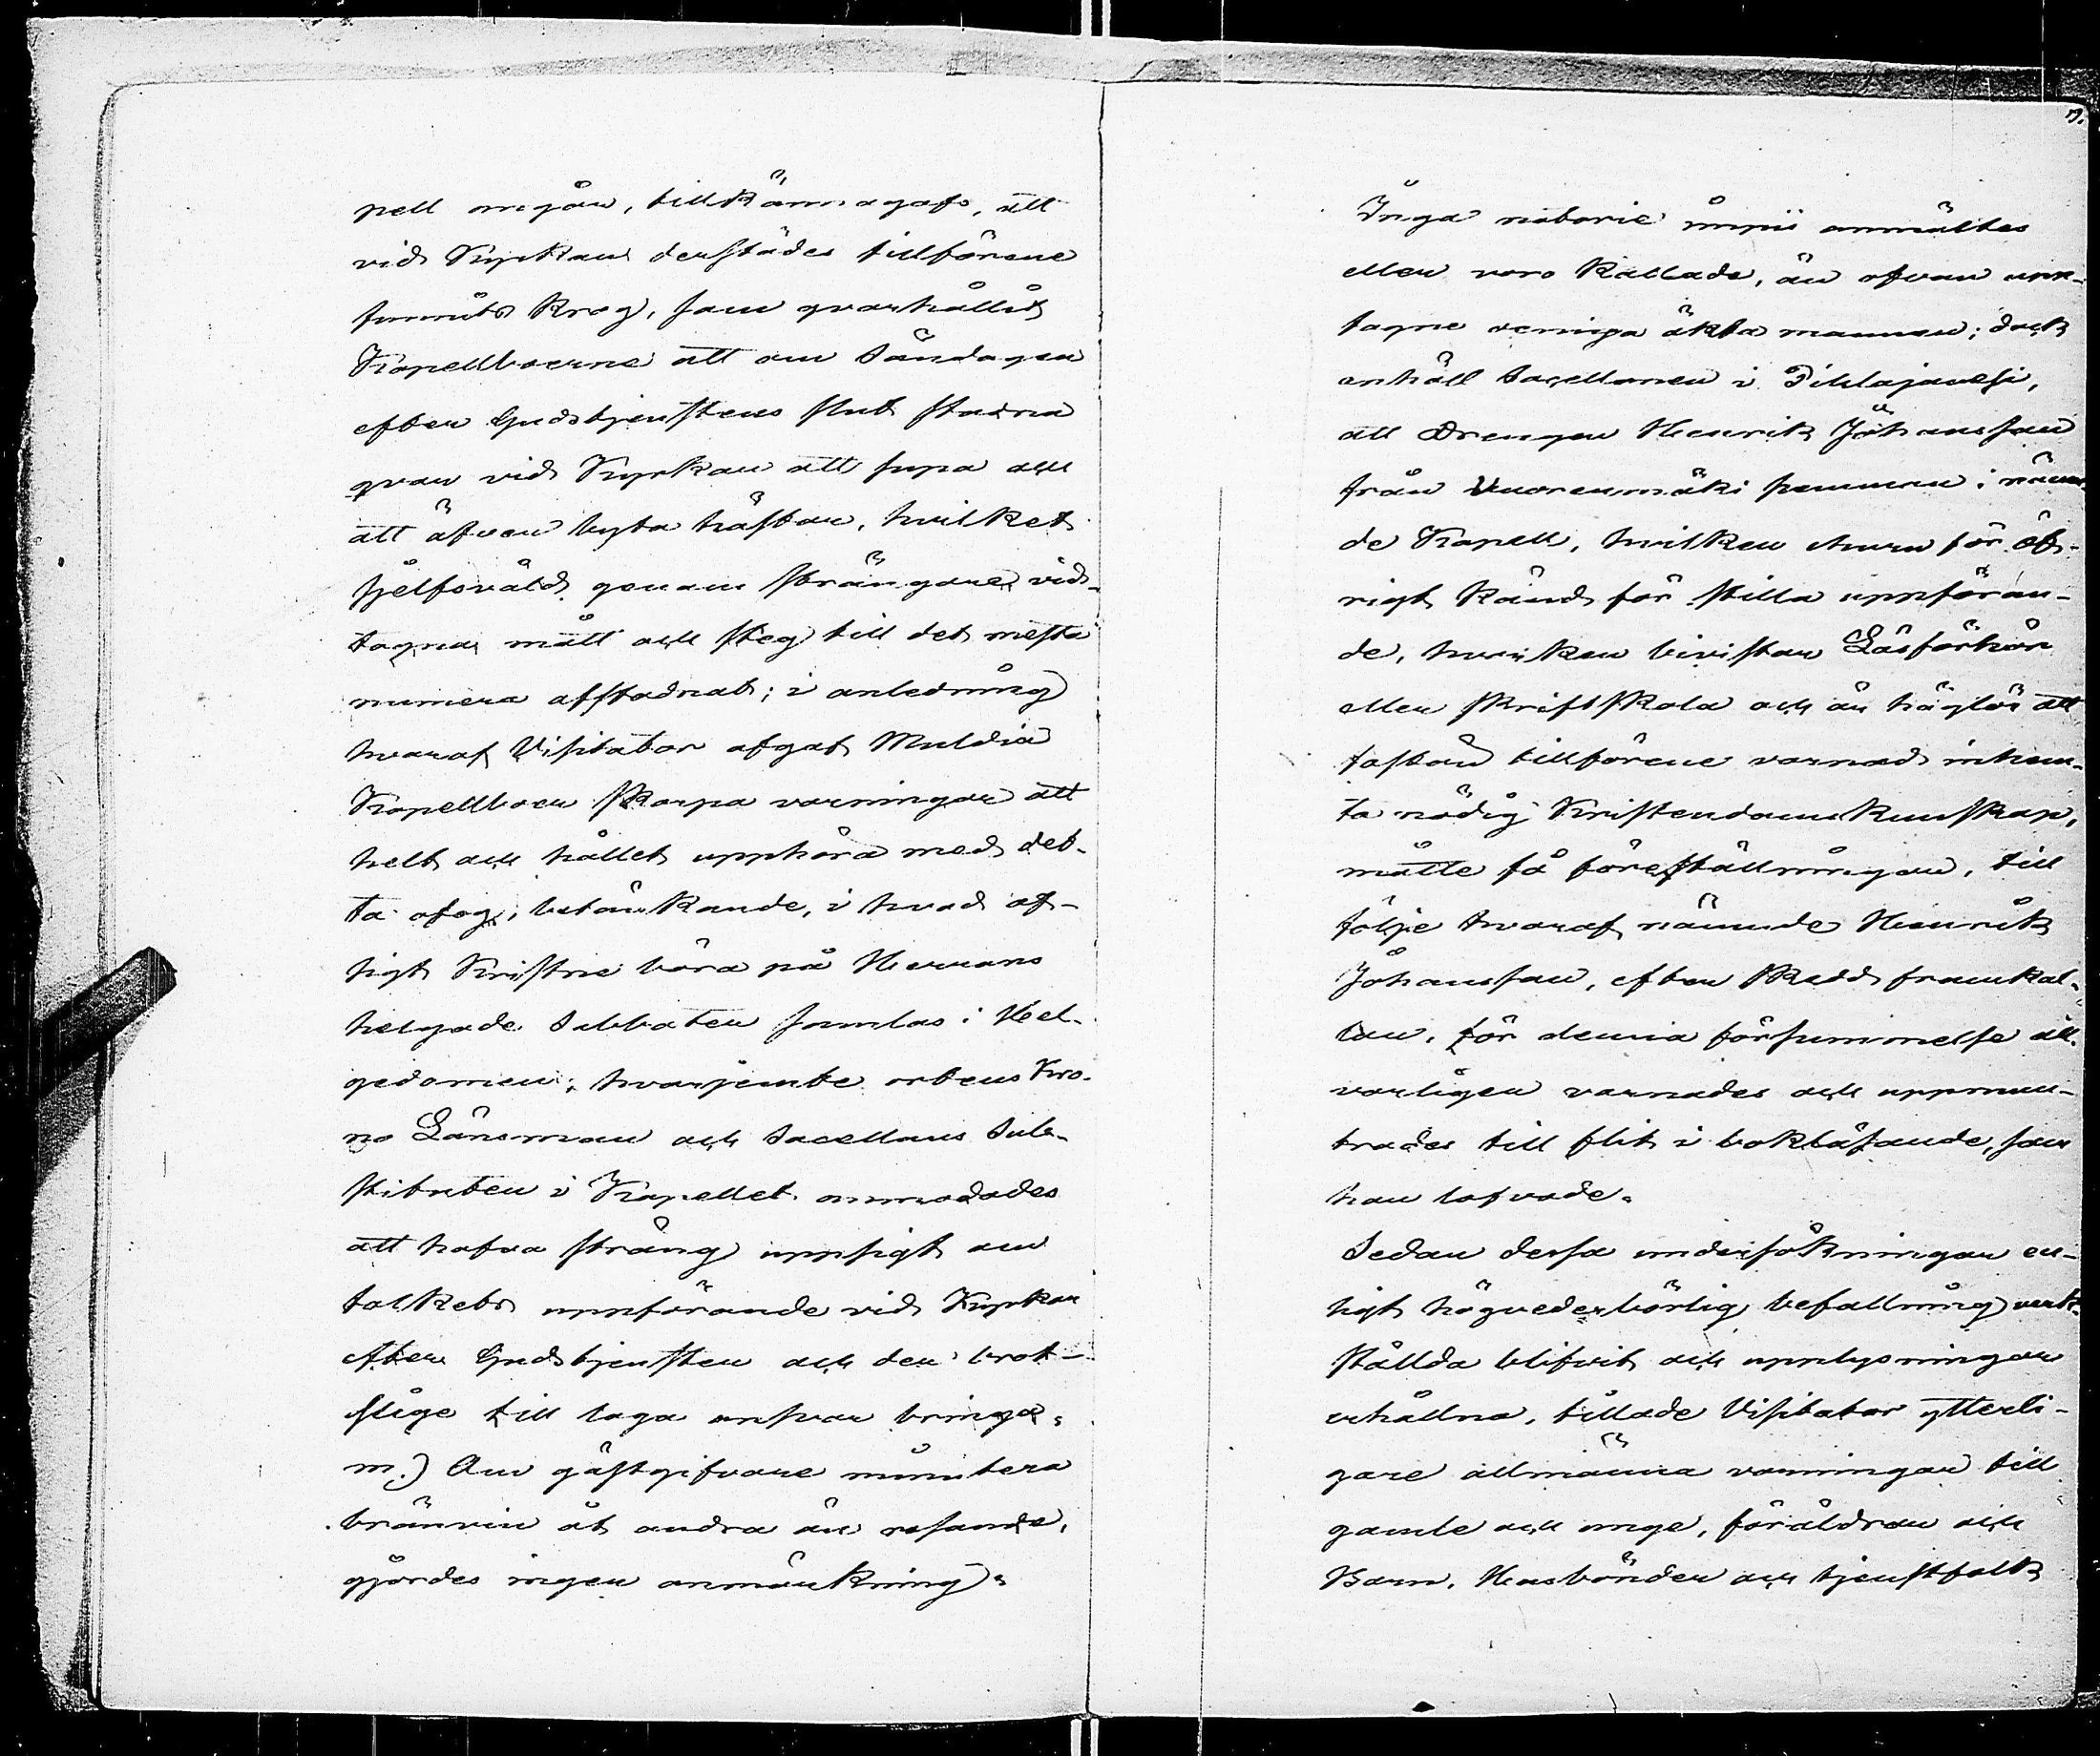 pell omgår, tillkännagafs, att
vid Kyrkan derstädes tillförene
funnits krog, som qvarhållit
Kapellboerne att om Söndagen
efter Gudstjenstens slut stadna
qvar vid Kyrkan att supa och
att äfven byta hästar, hvilket
sjelfsvåld genom strängare vid-
tagna mått och steg till det mesta
numera afstadnat; i anledning
hvaraf Visitator afgaf Multia
Kapellboer skarpa varningar att
helt och hållet upphöra med det-
ta ofog, betänkande, i hvad af-
sigt Kristne böra på Herrans
helgade Sabbater samlas i Hel-
gedomen; hvarjemte ortens Kro-
no Länsman och Sacellans Sub-
stituten i Kapellet anmodades
att hafva sträng uppsigt om
folkets uppförande vid Kyrkan
efter Gudstjensten och den brot-
slige till laga ansvar bringa.
m.) Om gästgifvare minutera
bränvin åt andra än resande,
gjordes ingen anmärkning.
7.
Inga notorie impii anmältes
eller voro kallade, än ofvan upp-
tagne oeniga äkta makar; dock
anhöll Sacellanen i Pihlajavesi,
att Drengen Henrik Johansson
från Vuorenmäki hemman i näm-
de Kapell, hvilken ehuru för öf-
rigt känd för stilla uppföran-
de, hvarken bivistar Läsförhör
eller skriftskola och är håglös att
fastän tillförene varnad inhem-
ta nödig Kristendomskunskap,
måtte få föreställningar, till
följe hvaraf nämnde Henrik
Johansson, efter skedd framkal-
lan, för denna försummelse all-
varligen varnades och uppmun-
trades till flit i bokläsande, som
han lofvade.
Sedan dessa undersökningar en-
ligt högvederbörlig befallning verk-
ställda blifvit och upplysningar
erhållna, tillade Visitator ytterli-
gare allmänna varningar till
gamle och unge, föräldrar och
Barn, Husbönder och tjenstfolk